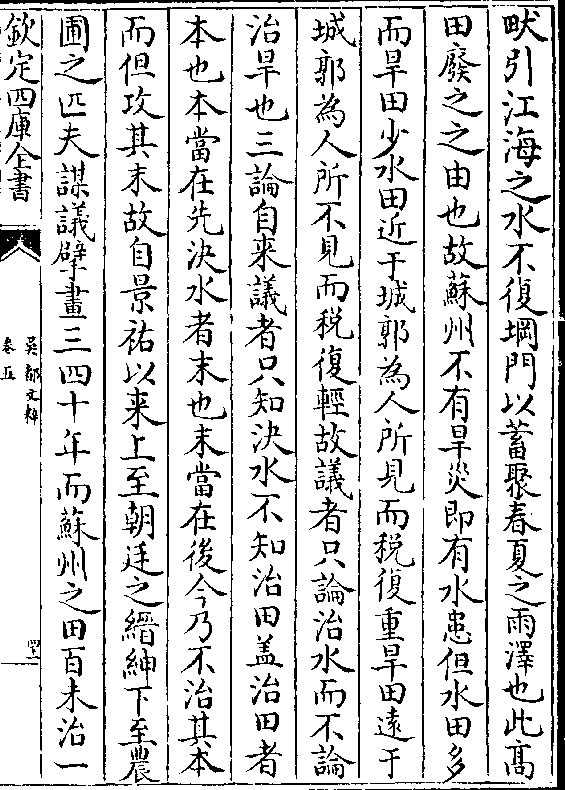 畎引江海之水不復堽門以蓄聚春夏之雨澤也此髙
田廢之之由也故蘇州不有旱災即有水患但水田多
而旱田少水田近于城郭為人所見而税復重旱田逺于
城郭為人所不見而税復輕故議者只論治水而不論
治旱也三論自来議者只知決水不知治田盖治田者
本也本當在先決水者末也末當在後今乃不治其本
而但攻其末故自景祐以来上至朝廷之縉紳下至農
圃之匹夫謀議擘畫三四十年而蘇州之田百未治一
欽定四庫全書
吳都文粹
卷五